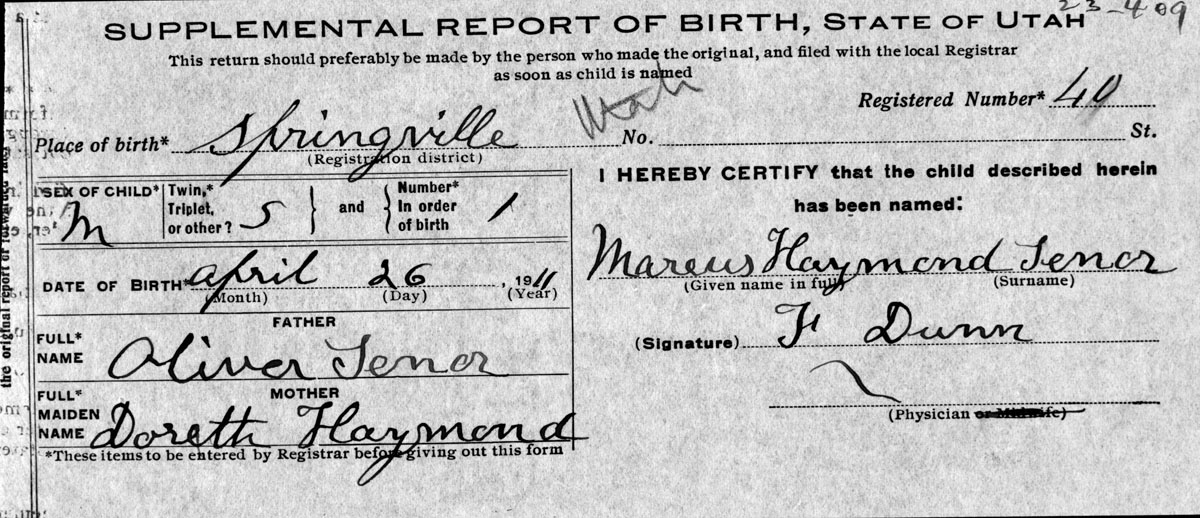 23-409
SUPPLEMENTAL REPORT OF BIRTH, STATE OF UTAH
This return should preferably be made by the person who made the original, and filed with the local Registrar
as soon as child is named
Registered Number* 40
Place of birth* Springville Utah No. St.
(Registration district)
SEX OF CHILD* M
Twin,*
Triplet,
or other? S
and
Number*
In order
of birth 1
DATE OF BIRTH* April 26, 1911
(Month) (Day) (Year)
FATHER
FULL*
NAME Oliver Tenor
MOTHER
FULL*
MAIDEN
NAME Doreth Haymond
*These items to be entered by Registrar before giving out this form
I HEREBY CERTIFY that the child described herein
has been named:
Marcus Haymond Tenor
(Given name in full) (Surname)
(Signature) F Dunn
(Physician or Midwife)
the original report or forwarded later